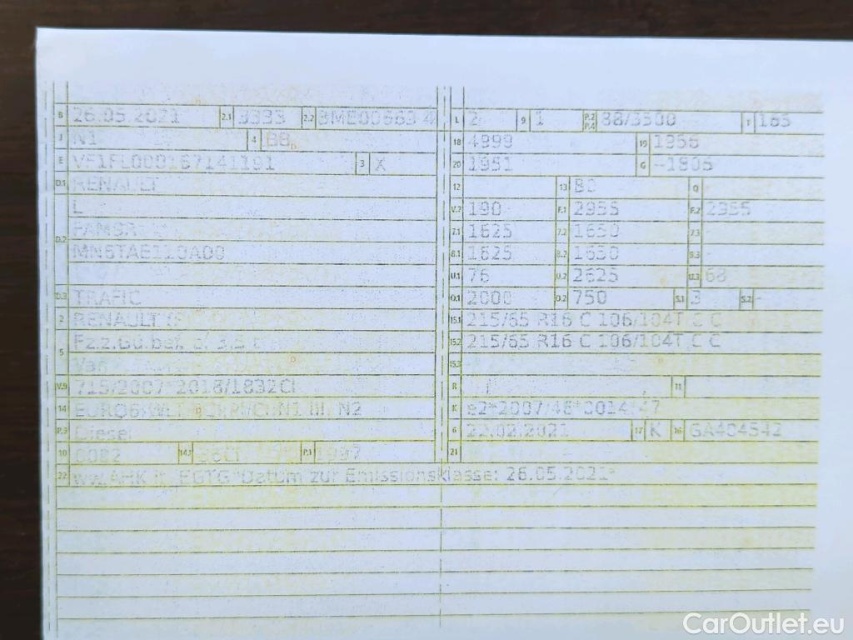 B 26.05.2021 2.1 3333 2.2 BME00663 4 L 2 9 1 P.2 P.4 88/3500 T 165
J N1 4 BB 18 4999 19 1956
E VF1FL000167141191 3 X 20 1951 G -1905
D.1 RENAULT 12 13 80 Q
L V.7 190 F.1 2955 F.2 2955
7.1 1625 7.2 1650 7.3
D.2 MN6TAE110A00 8.1 1625 8.2 1650 8.3
U.1 76 U.2 2625 U.3 68
D.3 TRAFIC O.1 2000 O.2 750 S.1 3 S.2 -
2 RENAULT (F) 15.1 215/65 R16 C 106/104T C C
5 Fz.z.Gü.bef. b. 3,5 t 15.2 215/65 R16 C 106/104T C C
Van 15.3
V.9 715/2007*2018/1832CI R 11
14 N1 III, N2 K e2*2007/46*0014*47
P.3 Diesel 6 22.02.2021 17 K 16 GA404542
10 0002 14.1 36CI P.1 1997 21
22 ww.AHK lt. EGTG*Datum zur Emissionsklasse: 26.05.2021*
CarOutlet.eu